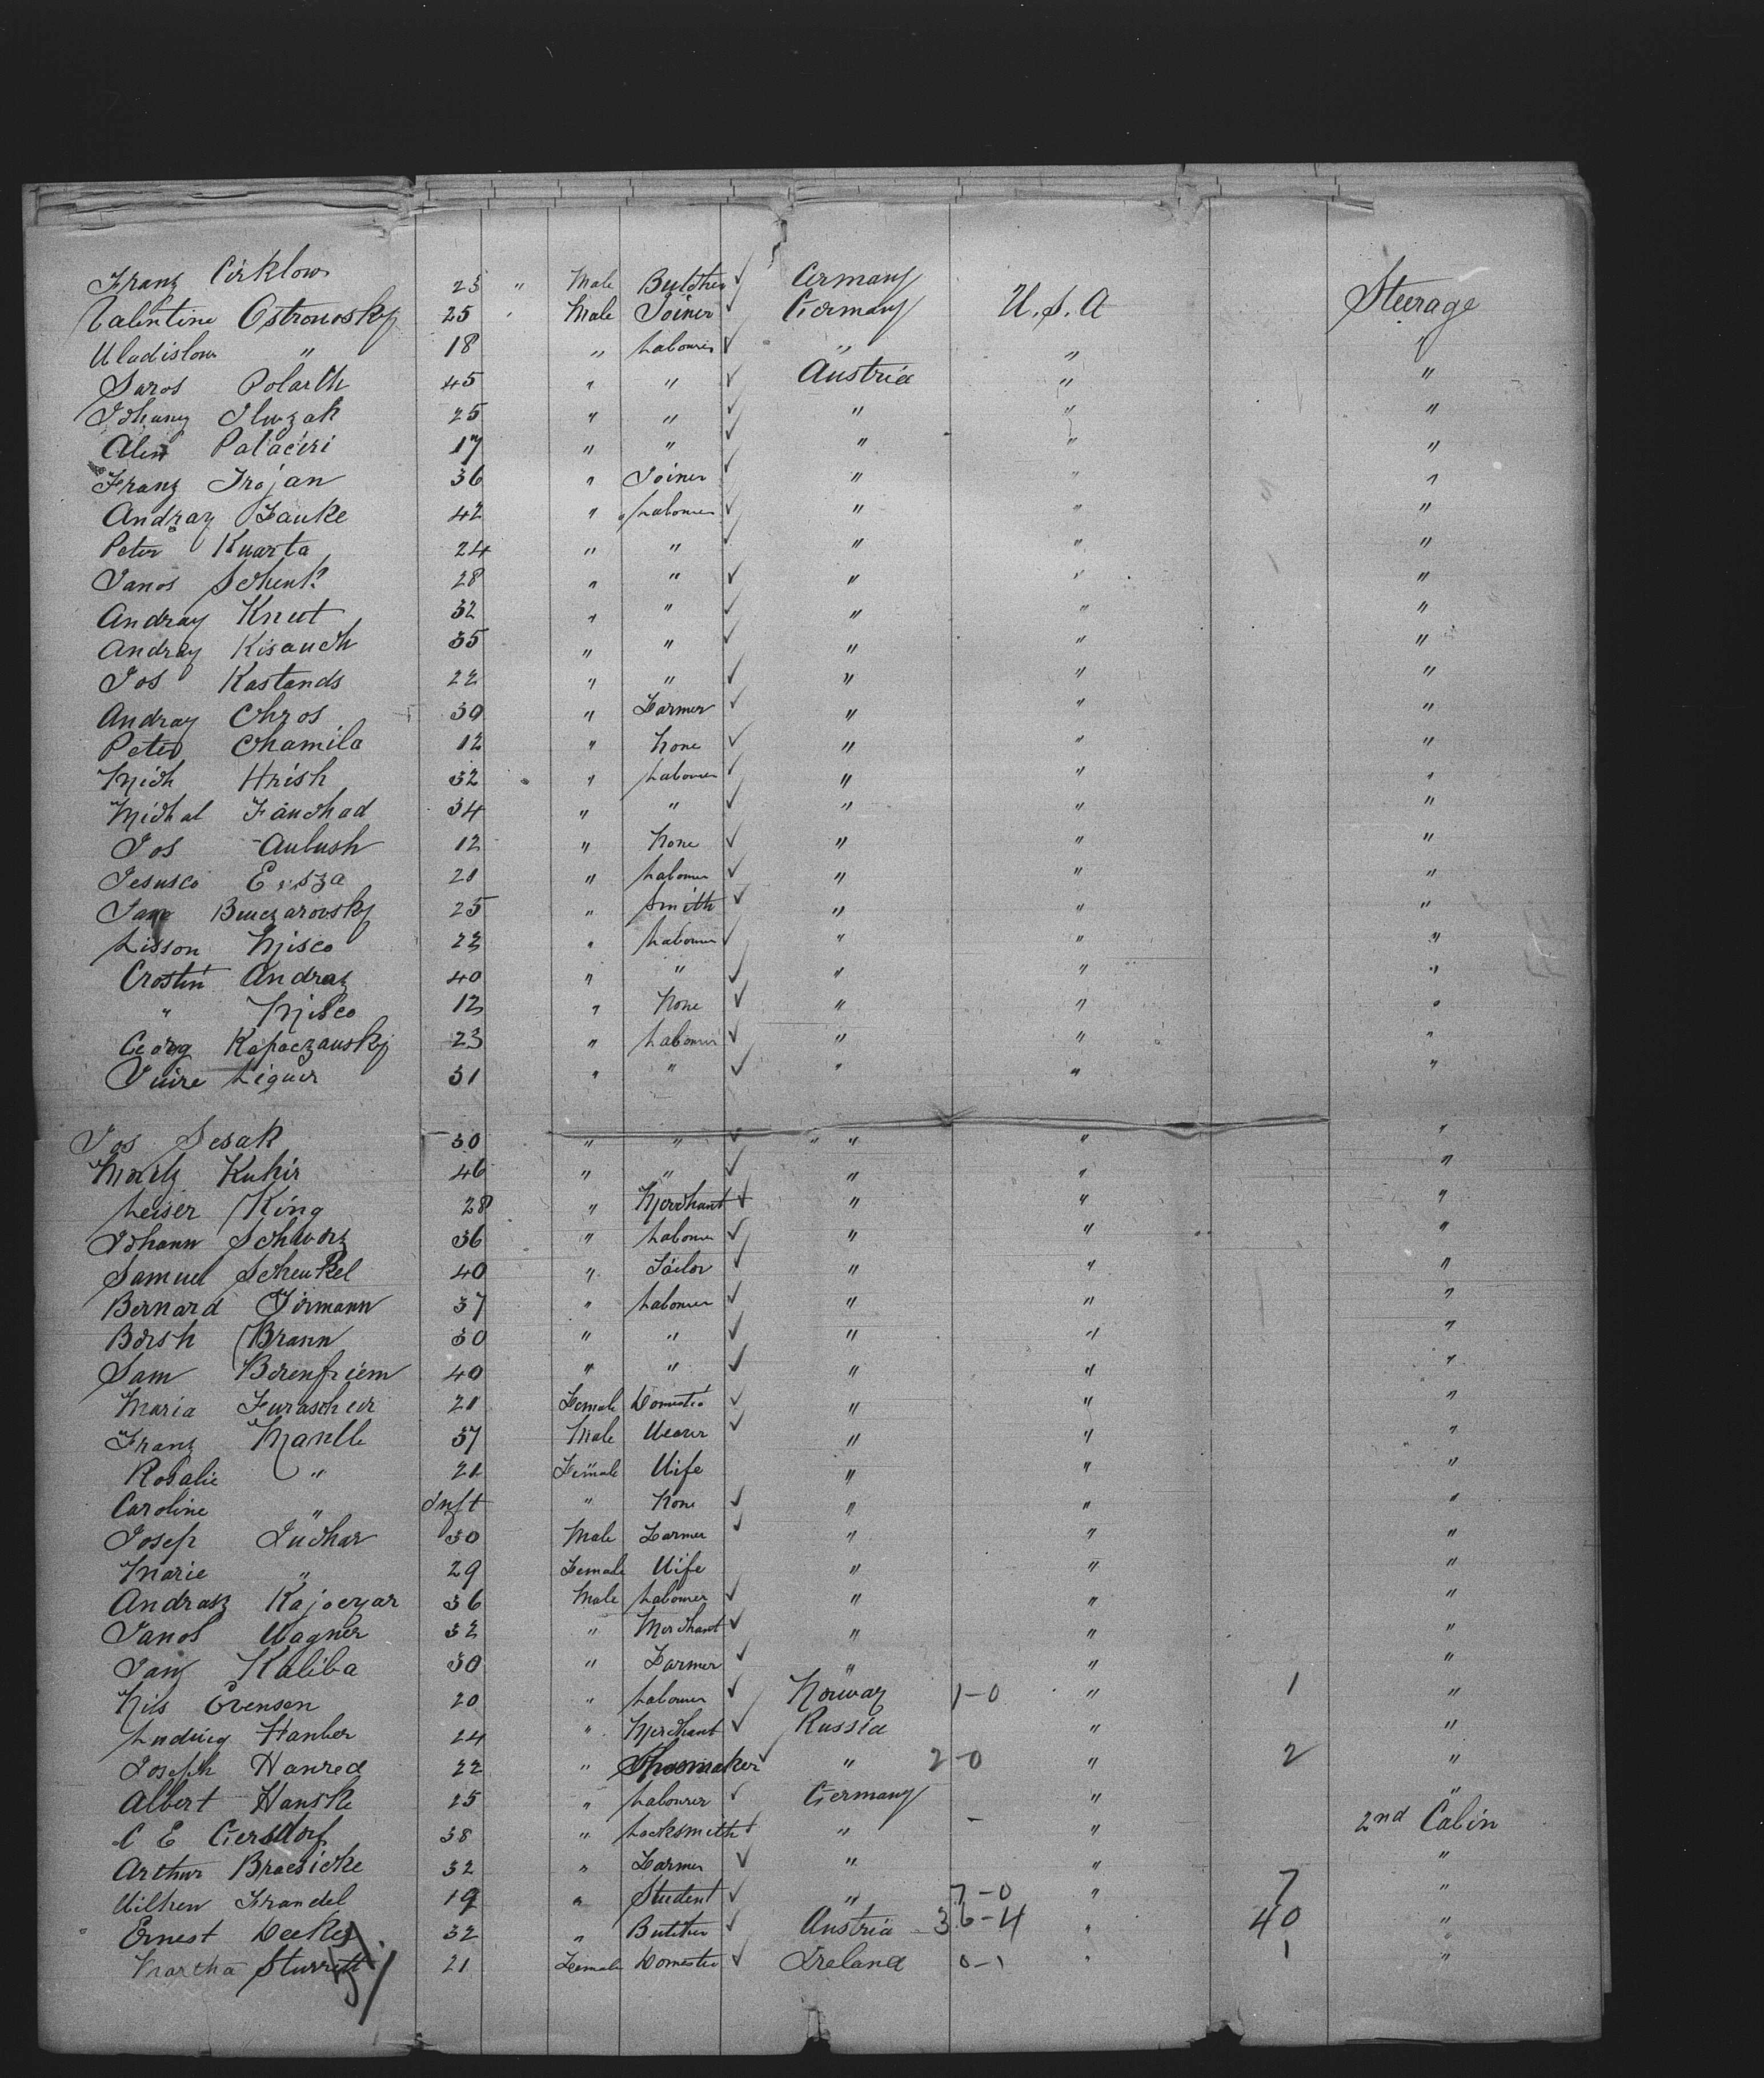 Franz Cirklow 23 " Male Butcher ✓ Germany
Valentine Ostronosky 25 " Male Joiner ✓ Germany U.S.A Steerage
Uladislow " 18 " Labourer ✓ " " "
Saros Polarth 45 " " ✓ Austria " "
Johany 25 " " ✓ " " "
Alen Palaciri 17 " " ✓ " " "
Franz Trojan 36 " Joiner ✓ " " "
Andray Fauke 42 " Labourer ✓ " " "
Peter Kuarta 24 " " ✓ " " "
Janos Schenk 28 " " ✓ " " "
Andray Knut 32 " " ✓ " " "
Andray Kisauch 35 " " ✓ " " "
Jos Kastands 22 " " ✓ " " "
Andray Chros 30 " Farmer ✓ " " "
Peter Chamila 12 " None ✓ " " "
Mich Hrish 32 " Labourer ✓ " " "
Michal Fauchad 34 " " ✓ " " "
Jos Aulush 12 " None ✓ " " "
Jesusco 21 " Labourer ✓ " " "
Buczarovsky 25 " Smith ✓ " " "
Lisson Misco 22 " Labourer ✓ " " "
Crostin Andraz 40 " " ✓ " " "
" Misco 12 " None ✓ " " "
Georg Kapaczansky 23 " Labourer ✓ " " "
Juire Liguer 31 " " ✓ " " "
Jos Sesak 30 " " ✓ " " " "
Moritz Kuhir 46 " " ✓ " " "
Leiser King 28 " Merchant ✓ " " "
Johann Schworz 36 " Labourer ✓ " " "
Samuel Schenkel 40 " Tailor ✓ " " "
Bernard Firmann 37 " Labourer ✓ " " "
Borsh Brann 30 " " ✓ " " "
Sam Borenfriem 40 " " ✓ " " "
Maria Furascheir 21 Female Domestic ✓ " " "
Franz Mantle 37 Male Weaver ✓ " " "
Rosalie " 21 Female Wife " " "
Caroline " Inft " None ✓ " " "
Josep Luchar 30 Male Farmer ✓ " " "
Marie " 29 Female Wife " " "
Andrasz Kajoczar 36 Male Labourer ✓ " " "
Janos Wagner 32 " Merchant ✓ " " "
Jany Kaliba 30 " Farmer ✓ " " "
Nils Evensen 20 " Labourer ✓ Norway 1-0 " 1 "
Ludwig Hanber 24 " Merchant ✓ Russia " "
Joseph Hanred 22 " Shoemaker ✓ " 2-0 " 2 "
Albert Hanske 25 " Labourer ✓ Germany " "
C E Gersdorf 38 " Locksmith ✓ " - " 2nd Cabin
Arthur Braesicke 32 " Farmer ✓ " " "
Wilhem Frandel 19 " Student ✓ " 7-0 " 7 "
Ernest Decker 32 " Butcher ✓ Austria 36-4 " 40 "
Martha Sturritt 21 Female Domestic ✓ Ireland 0-1 " 1 "